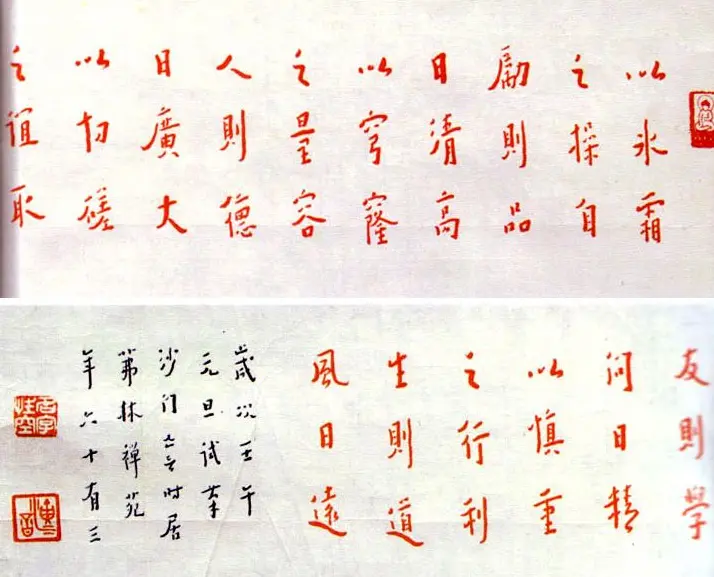 以氷霜
之操自
勵則品
日清高
以穹窿
之量容
人則德
日廣大
以切磋
之誼取
友則學
問日精
以慎重
之行利
生則道
風日遠
歲次壬午
元旦試筆
沙门亡言时居
茀林禅苑
年六十有三
名字性空
演音